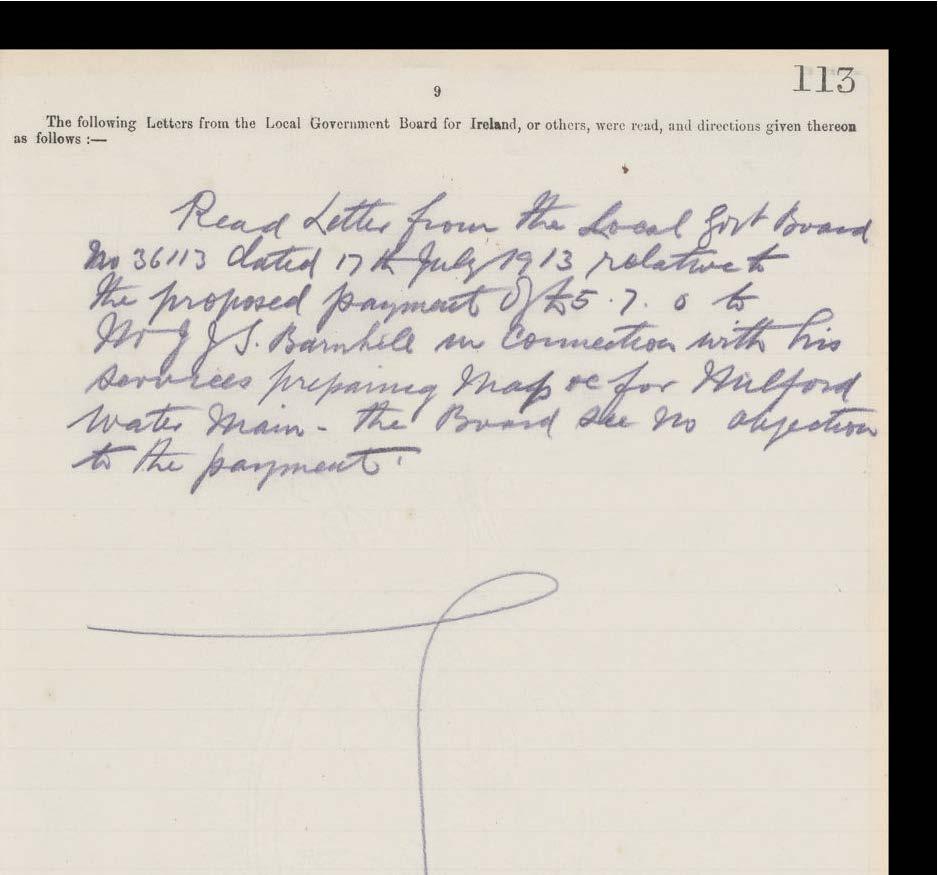 113
9
The following Letters from the Local Government Board for Ireland, or others, were read, and directions given thereon
as follows :—
Read Letter from the Local Govt Board
No 36113 dated 17th July 1913 relative to
the proposed payment of £5. 7. 0 to
Mr J J S. Barnhill in connection with his
services preparing Maps &c for Milford
Water Main - the Board see no objection
to the payment.